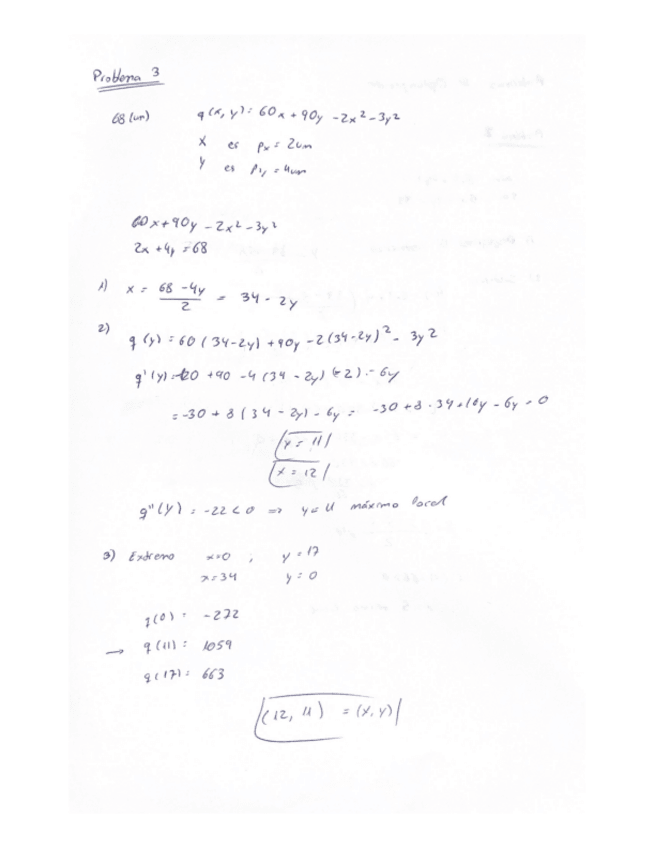 Problema 3
68 (um) q(x, y) = 60x + 90y - 2x² - 3y²
x es px = 2um
y es py = 4um
60x + 90y - 2x² - 3y²
2x + 4y = 68
1) x = (68 - 4y)/2 = 34 - 2y
2) q(y) = 60(34-2y) + 90y - 2(34-2y)² - 3y2
q'(y) = -120 + 90 - 4(34 - 2y)(-2) - 6y
= -30 + 8(34 - 2y) - 6y = -30 + 8·34 - 16y - 6y = 0
y = 11
x = 12
q''(y) = -22 < 0 ⇒ y = 11 máximo local
3) Extremo x=0, y = 17
x = 34 y = 0
q(0) = -272
→ q(11) = 1059
q(17) = 663
(12, 11) = (x, y)